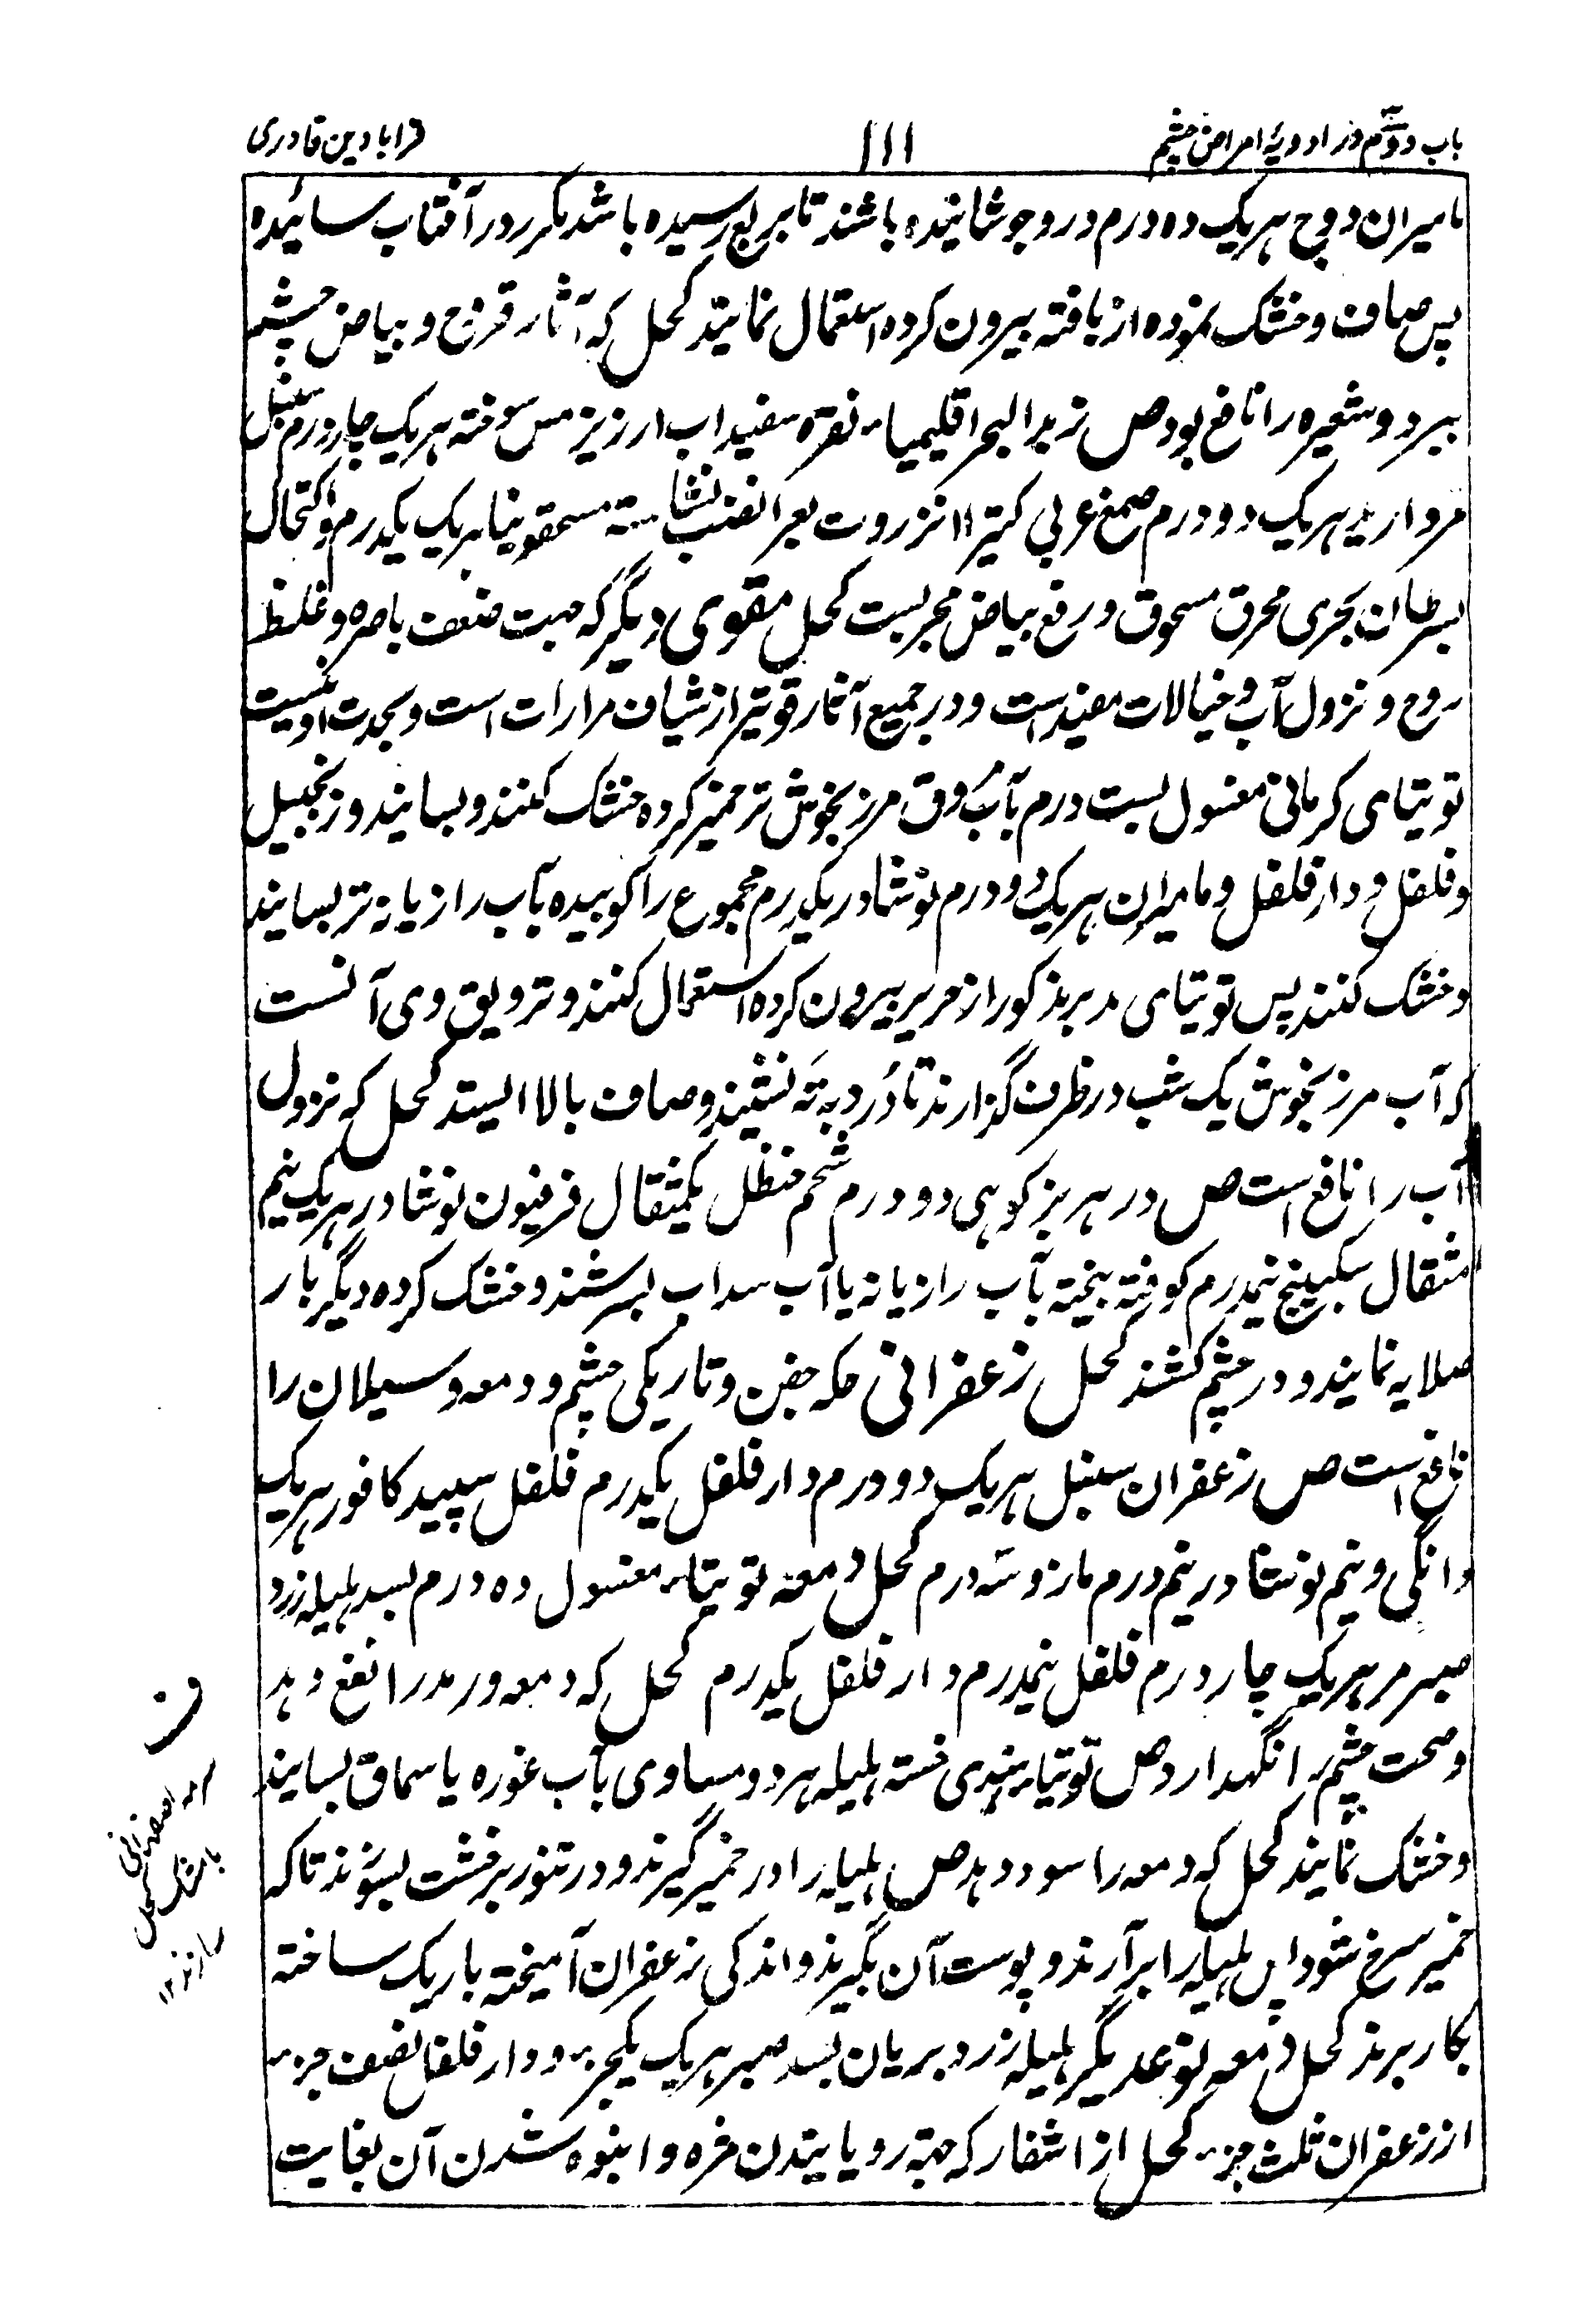 باب دوم در ادویهٔ امراض چشم
۱۱۱
قرابادین قادری
مامیران و وج هریک ده درم درو جوشانیده باشند تا بربع رسیده باشد مکرر در آفتاب سائیده
پس صاف و خشک نموده از بافته بیرون کرده استعمال نمایند کحل که آثار قروح و بیاض چشم
ببرد و شعیره را نافع بود ص زبد البحر اقلیمیاء نقره سفیداب ارزیز مس سوخته هریک چاردرم سنبل
مروارید هریک دو درم صمغ عربی کتیرا انزروت بعر الضب نشاسته سقمونیا هریک یکدرم و اکتحال
بسرطان بحری محرق مسحوق در رفع بیاض مجربست کحل مقوی دیگر که جهت ضعف باصره و غلظ
روح و نزول آب و خیالات مفید است و در جمیع آثار قویتر از شیاف مرارات است و بحدت او نیست
توتیای کرمانی مغسول بست درم بآب مروق مرزنجوش تر خمیر کرده خشک کنند و بسایند و زنجبیل
و فلفل و دار فلفل و مامیران هریک دو درم نوشادر یکدرم مجموع را کوبیده بآب رازیانه تر بسایند
و خشک کنند پس توتیای مدبر مذکور از حریر بیرون کرده استعمال کنند و ترویق وی آنست
که آب مرزنجوش یک شب در ظرف گذارند تا درد به ته نشیند و صاف بالا ایستد کحل که نزول
آب را نافع است ص در هر بز کوهی دو درم شحم حنظل یکمثقال فرفیون نوشادر هریک نیم
مثقال سکبینج نیمدرم کوفته بیخته بآب رازیانه یا آب سداب بسرشند و خشک کرده دیگر بار
صلایه نمایند و در چشم کشند کحل زعفرانی حکه جفن و تاریکی چشم و دمعه و سیلان را
نافع است ص زعفران سنبل هریک دو درم دار فلفل یکدرم فلفل سپید کافور هریک
دانگی و نیم نوشادر نیم درم مازو سه درم کحل دمعه توتیاء مغسول ده درم بسد هلیله زرد
صبر مر هریک چار درم فلفل نیمدرم دار فلفل یکدرم کحل که دمعه و رمد را نفع دهد
و صحت چشم را نگهدارد ص توتیاء هندی خسته هلیله هر دو مساوی بآب غوره یا سماق بسایند
و خشک نمایند کحل که دمعه را سود دهد ص هلیله را در خمیر گیرند و در تنور بر خشت بسوزند تا که
خمیر سرخ شود پس هلیله را بر آرند و پوست آن بگیرند و اندکی زعفران آمیخته باریک ساخته
بکار برند کحل دمعه نوعدیگر هلیله زرد بریان بسد صبر هریک یکجزء و دار فلفل نصف جزء
از زعفران ثلث جزء کحل از اشفار که جهته رویانیدن مژه و انبوه شدن آن بغایت
سرمه اصفهانی
با مشک
سازند ۱۲